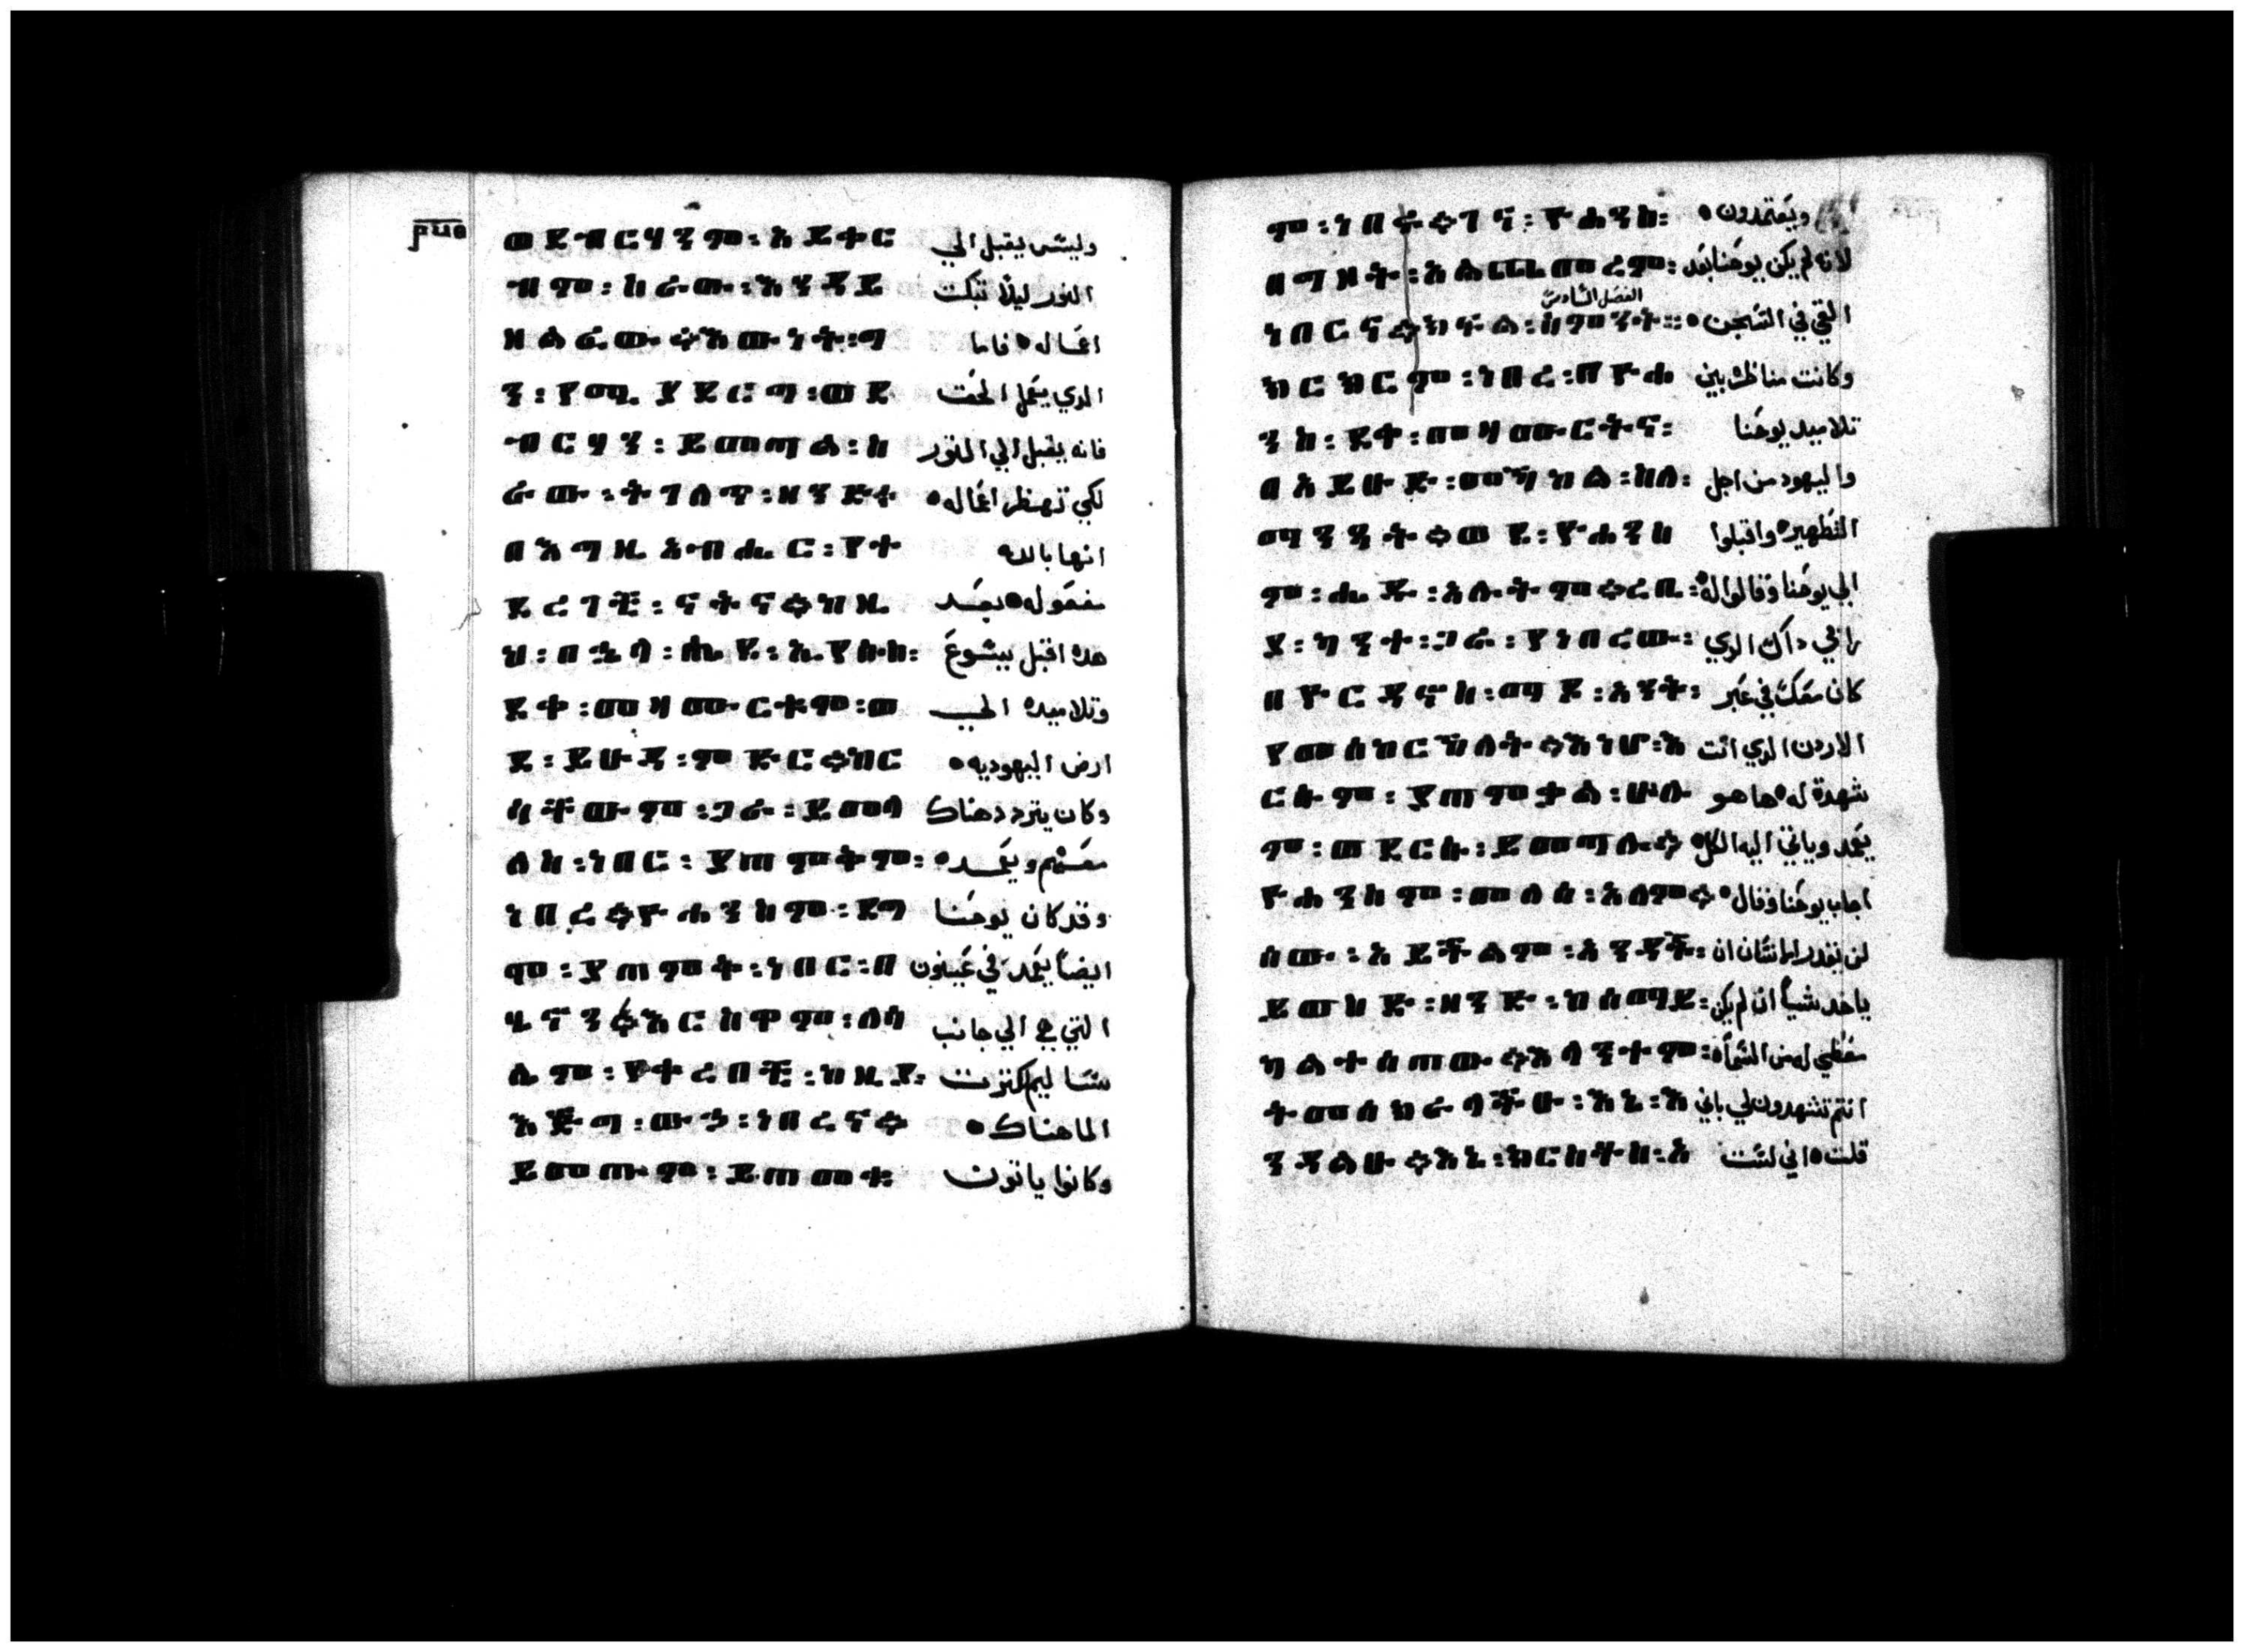 ወደ ብርሃንም፡አይቀር وليس يقبل الي
ብም፡ስራው፡እንዳይ النور ليلا تبكت
ዘልፈው፡፡እውነት፡ግ اعماله فاما
ን፡የሚያደርግ፡ወደ الدي يعمل الحق
ብርሃን፡ይመጣል፡ስ فانه يقبل الي النور
ራው፡ትገለጥ፡ዘንድት لكي تظهر اعماله
በእግዚአብሔር፡የተ انها بالله
ደረገች፡ናትና፡፡ከዚ معموله بعد
ህ፡በኋላ፡ሔደ፡ኢየሱስ፡ هده اقبل يسوع
ደቀ፡መዛሙርቱም፡ወ وتلاميده الي
ደ፡ይሁዳ፡ምድር፡፡ከር ارض اليهوديه
ሳቸውም፡ጋራ፡ይመላ وكان يتردد هناك
ለስ፡ነበር፡ያጠምቅም፡ معهم ويعمد
ነበረ፡፡ዮሐንስም፡ደግ وقد كان يوحنا
ሞ፡ያጠምቅ፡ነበር፡በ ايضا يعمد في عينون
ሄኖን፡፡እርስዋም፡ለሳ التي هي الي جانب
ሊም፡የቀረበች፡ከዚያ፡ ساليم لكترت
እጅግ፡ውኃ፡ነበረና፡፡ الما هناك
ይመጡም፡ይጠመቁ وكانوا ياتون
ም፡ነበሩ፡፡ገና፡ዮሐንስ፡ ويعتمدون
በግዞት፡አልጨመረም፡ لانه لم يكن يوحنا بعد
الفصل السادس
ነበርና፡፡ክፍል፡ስምንት፡፡ القي في السجن
ክርክርም፡ነበረ፡በዮሐ وكانت مناظره بين
ንስ፡ደቀ፡መዛሙርትና፡ تلاميد يوحنا
በአይሁድ፡መካከል፡ስለ፡ واليهود من اجل
ማንጻት፡፡ወደ፡ዮሐንስ التطهير واقبلوا
ም፡ሔዱ፡አሉትም፡፡ረቢ፡ الي يوحنا وقالوا له
ያ፡ካንተ፡ጋራ፡የነበረው፡ رابي داك الدي
በዮርዳኖስ፡ማዶ፡አንተ፡ كان معك في عبر
የመሰከርኽለት፡፡እነሆ፡እ الاردن الدي انت
ርሱም፡ያጠምቃል፡ሁሉ شهدت له ها هو
ም፡ወደርሱ፡ይመጣሉ፡፡ يعمد وياتي اليه الكل
ዮሐንስም፡መለሰ፡አለም፡፡ اجاب يوحنا وقال
ሰው፡አይችልም፡አንዳች፡ لن يقدر انسان ان
ይወስድ፡ዘንድ፡ከሰማይ፡ ياخد شيا ان لم يكن
ካልተሰጠው፡፡እላንተም፡ معطي له من السماء
ትመሰክራላችሁ፡እኔ፡እ انتم تشهدون لي باني
ንዳልሁ፡፡እኔ፡ክርስቶስ፡አ قلت اني لست